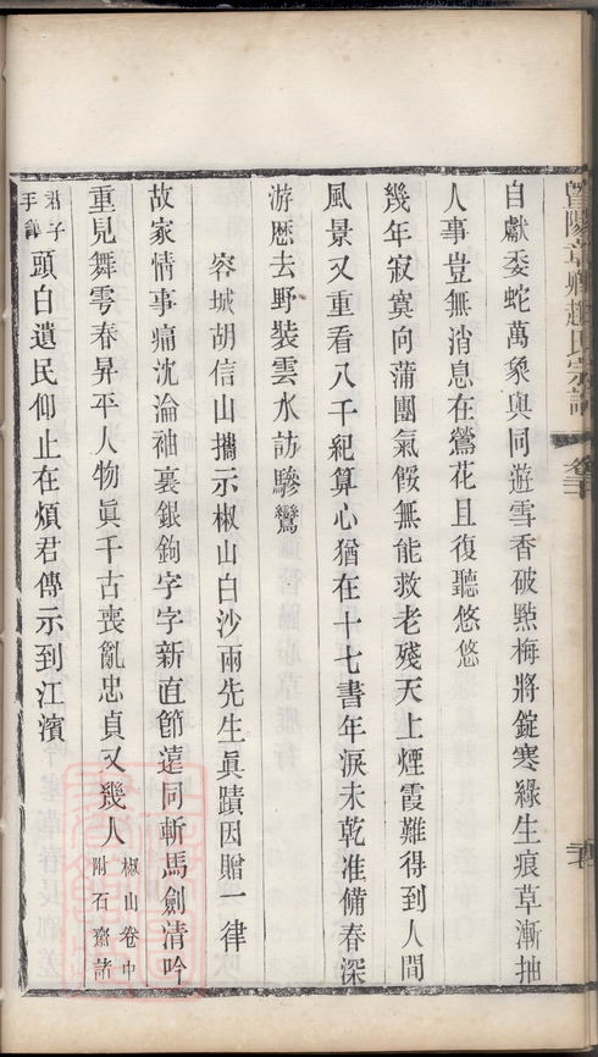 暨陽章卿趙氏宗譜
卷二十
自獻委蛇萬象與同遊雪香破㸃梅將錠寒綠生痕草漸抽
人事豈無消息在鶯花且復聽悠悠
幾年寂寞向蒲團氣餒無能救老殘天上煙霞難得到人間
風景又重看八千紀算心猶在十七書年淚未乾准備春深
游歴去野裝雲水訪驂鸞
容城胡信山攜示椒山白沙兩先生眞蹟因贈一律
故家情事痛沈淪袖裏銀鉤字字新直節遠同斬馬劍清吟
重見舞雩春昇平人物眞千古喪亂忠貞又幾人椒山卷中附石齋諸
君子手翰頭白遺民仰止在煩君傳示到江濱